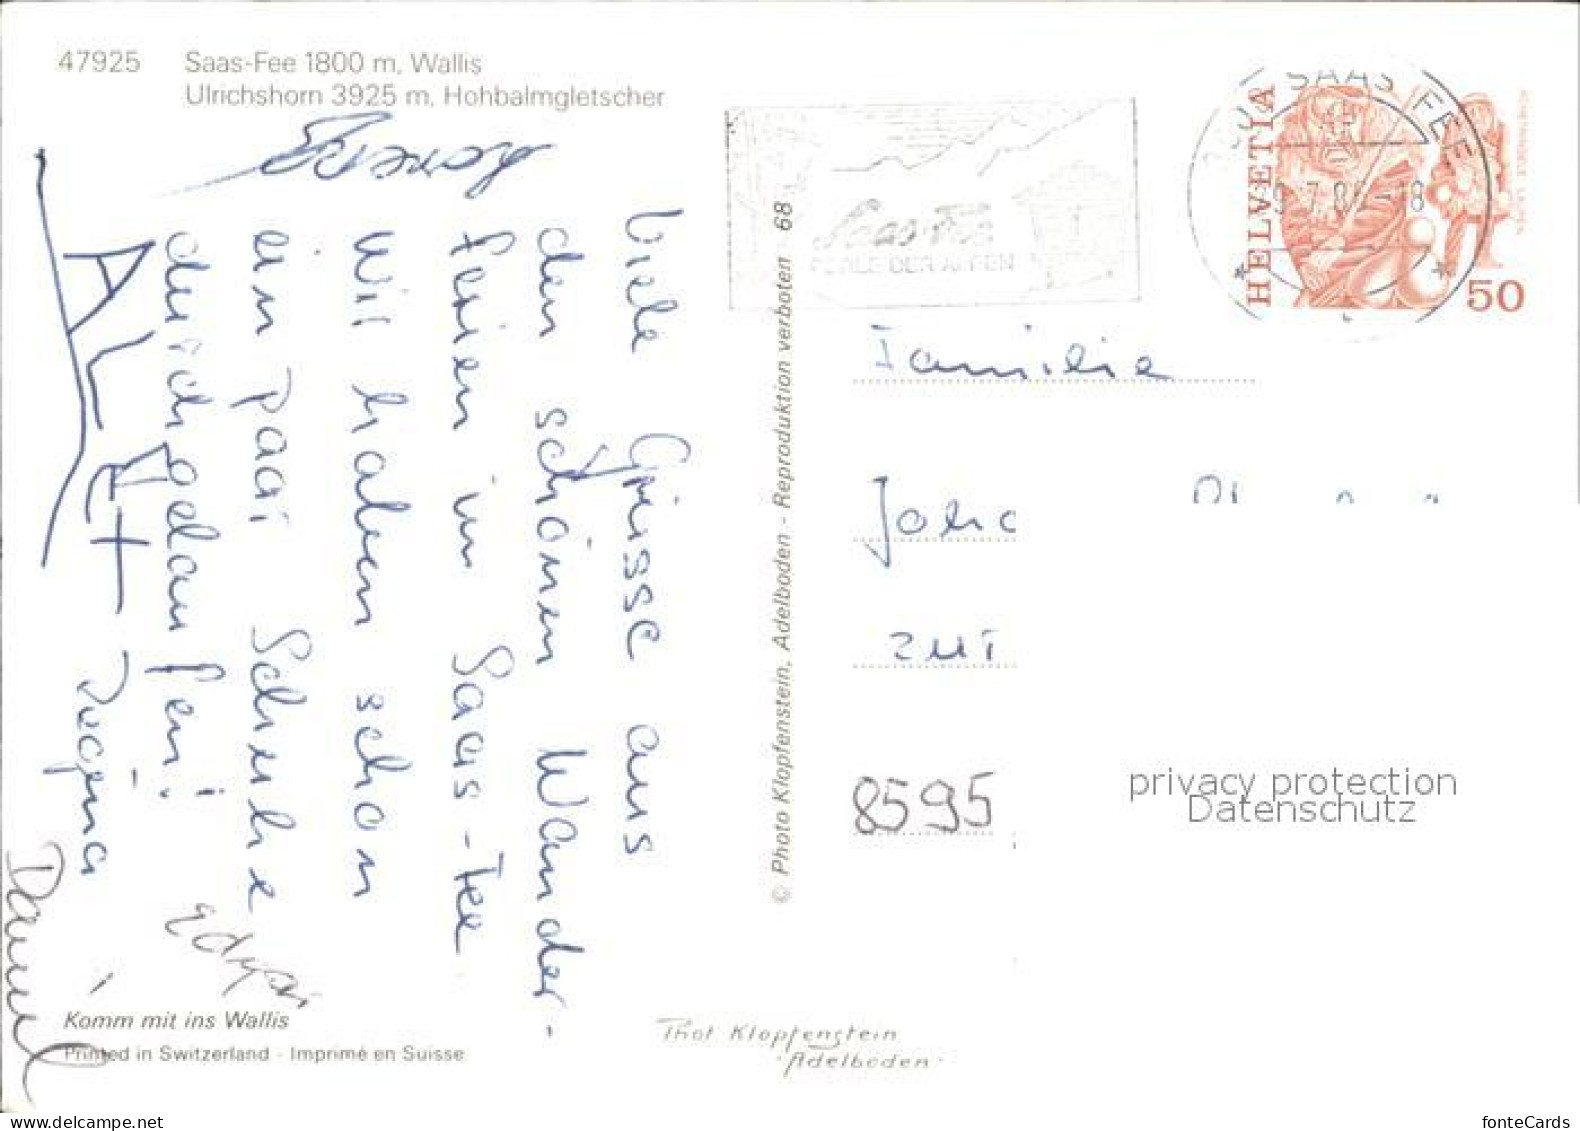 47925 Saas-Fee 1800 m, Wallis
Ulrichshorn 3925 m, Hohbalmgletscher
Viele Grüsse aus
den schönen Wander-
ferien in Saas-Fee
Wir haben schon
ein paar Schuhe
durchgelaufen!
Regina
Daniel
Komm mit ins Wallis
Printed in Switzerland - Imprimé en Suisse
© Photo Klopfenstein, Adelboden - Reproduktion verboten 68
Phot Klopfenstein
Adelboden
Saas-Fee
PERLE DER ALPEN
SAAS FEE
HELVETIA
50
Familie
zur
8595
privacy protection
Datenschutz
www.delcampe.net
fonteCards